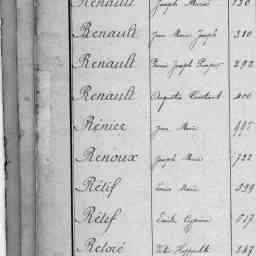 Renault Joseph Marie 130
Renault Jean Marie Joseph 310
Renault Pierre Joseph Prosper 292
Renault Augustin Constant 400
Ménier Jean Marie 995
Renoux Joseph Marie 722
Rétif Louis Marie 599
Rétif Emile Cyprien 617
Retoré Victor Hippolyte 247